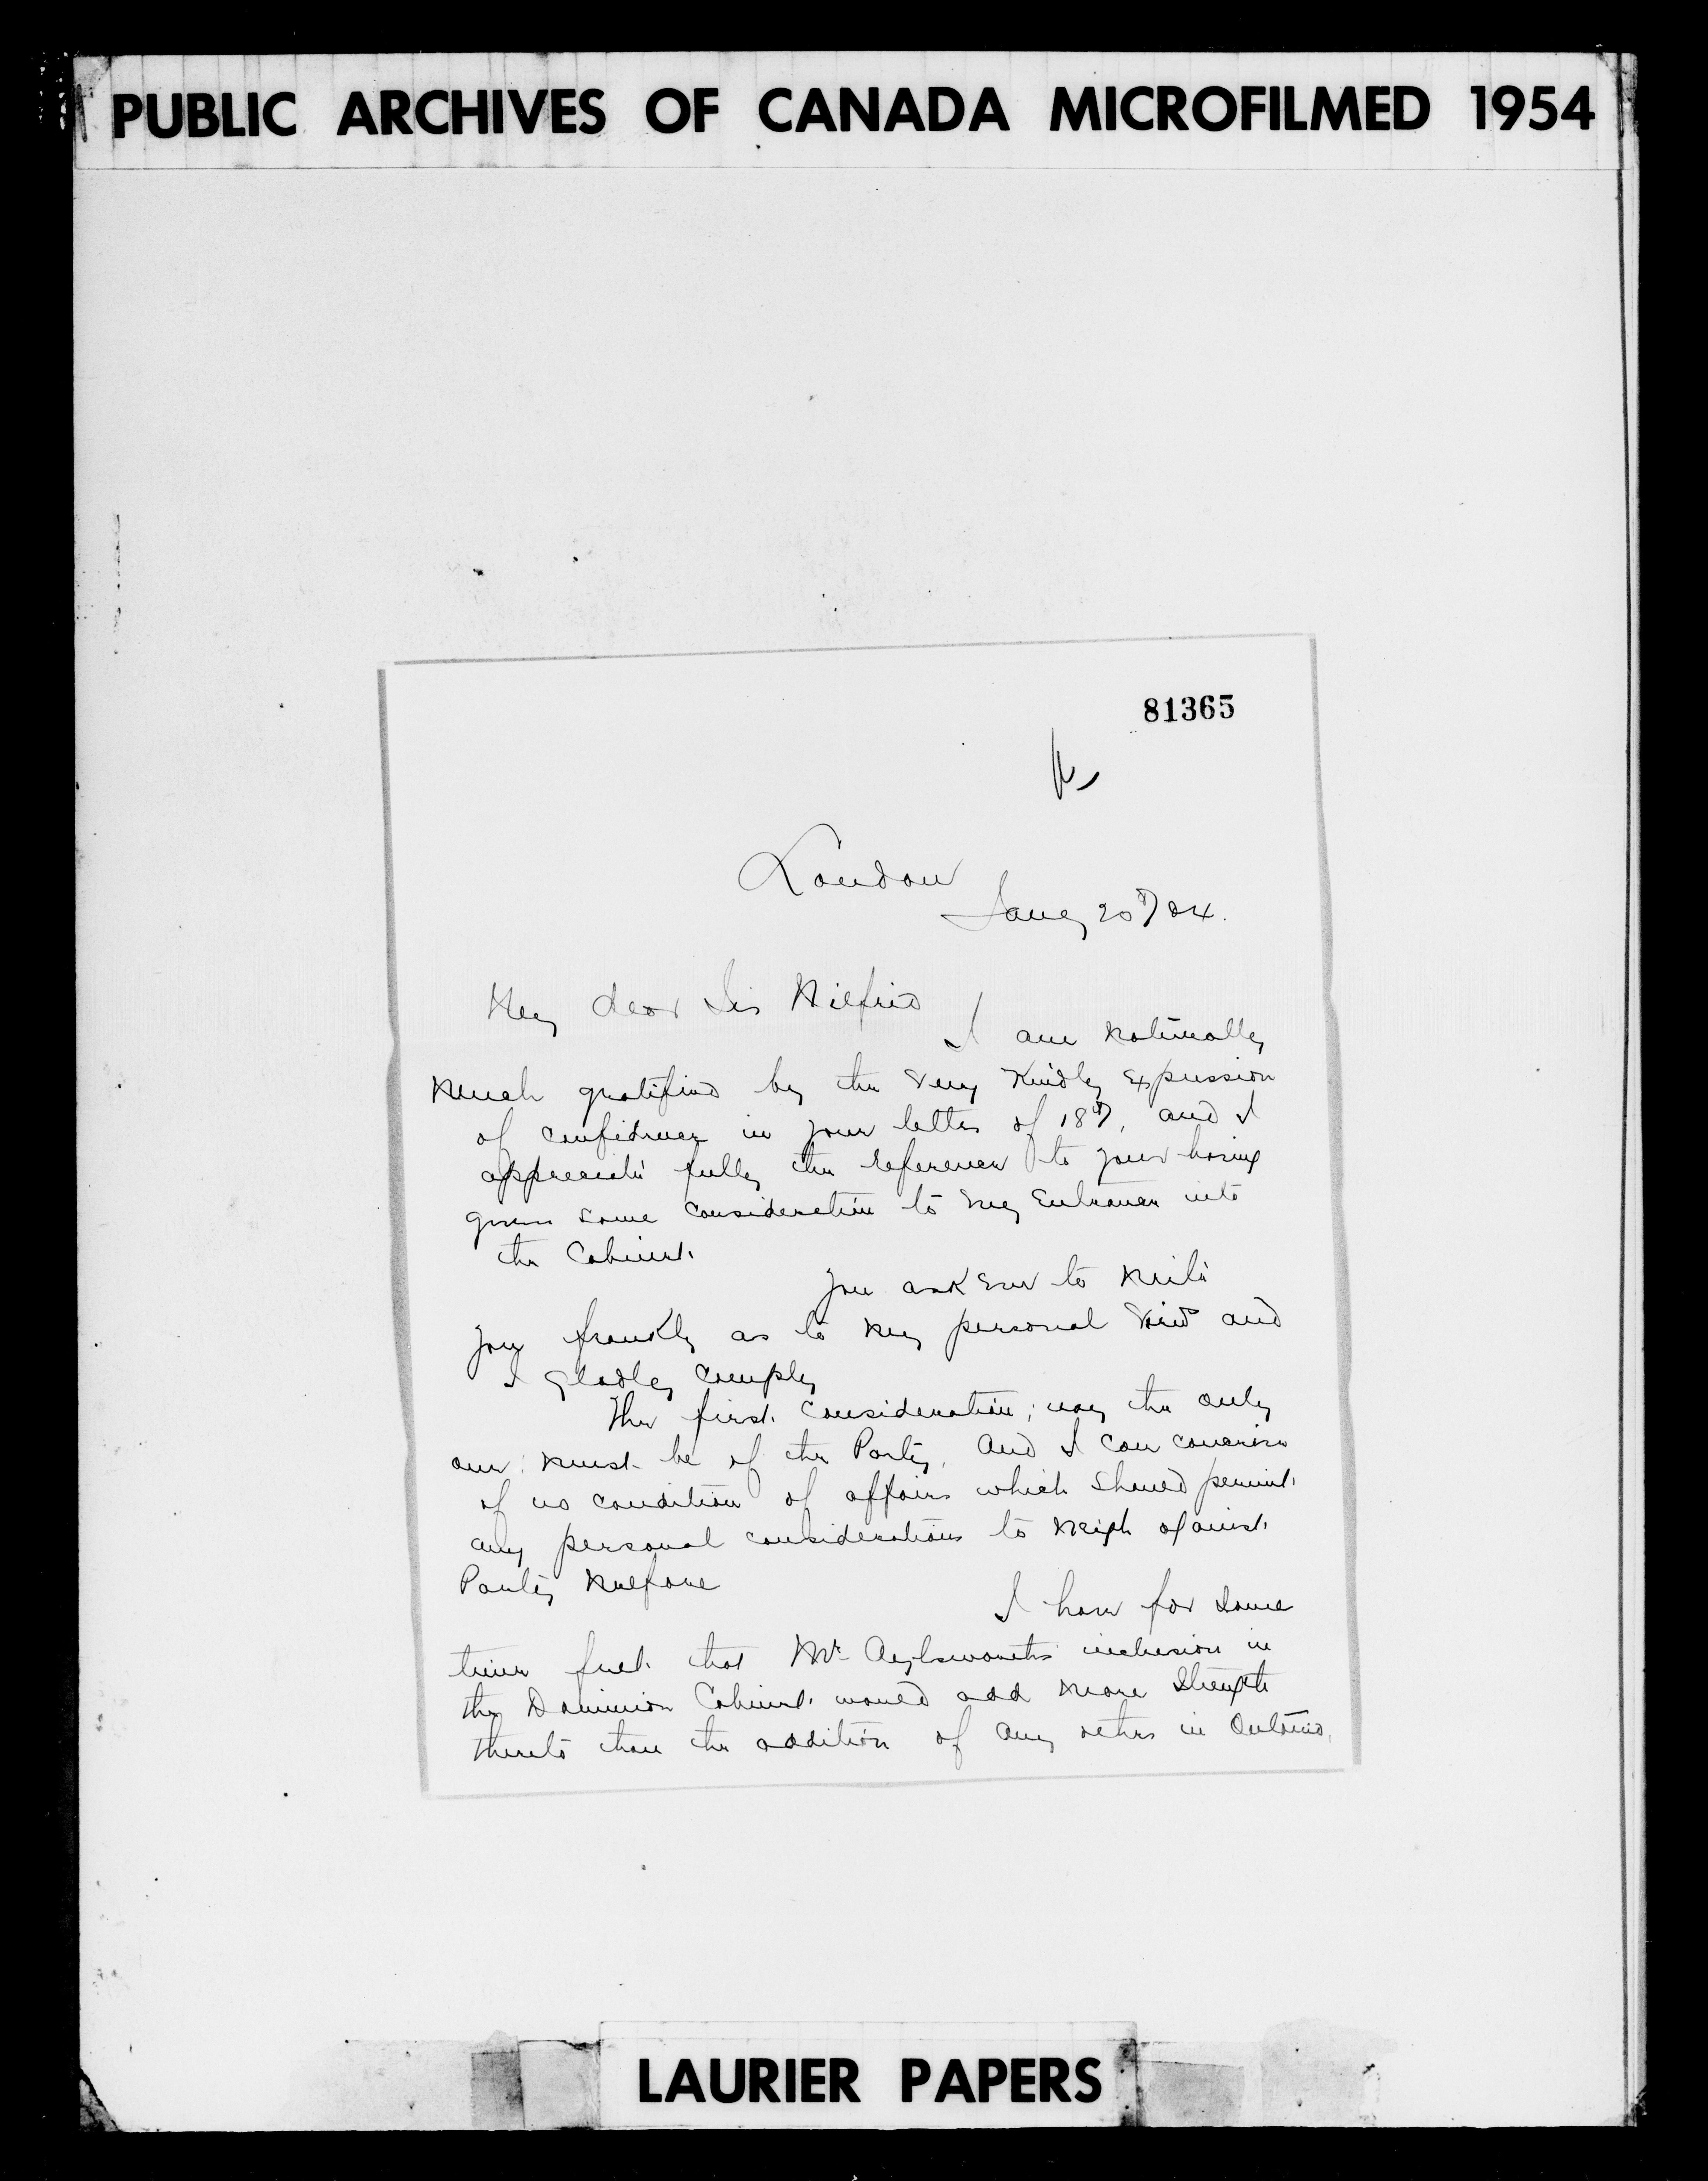 PUBLIC ARCHIVES OF CANADA MICROFILMED 1954
81365
London
Jany 20th/04.
My dear Sir Wilfrid
I am naturally
much gratified by the very kindly expression
of confidence in your letter of 18th, and I
appreciate fully the reference to your having
given some consideration to my entrance into
the Cabinet.
You ask me to write
you frankly as to my personal view and
I gladly comply
The first consideration; nay the only
one; must be of the Party, and I can conceive
of no condition of affairs which should permit
any personal considerations to weigh against
Party welfare
I have for some
time felt that Mr Aylesworth's inclusion in
the Dominion Cabinet would add more strength
thereto than the addition of any other in Ontario,
LAURIER PAPERS